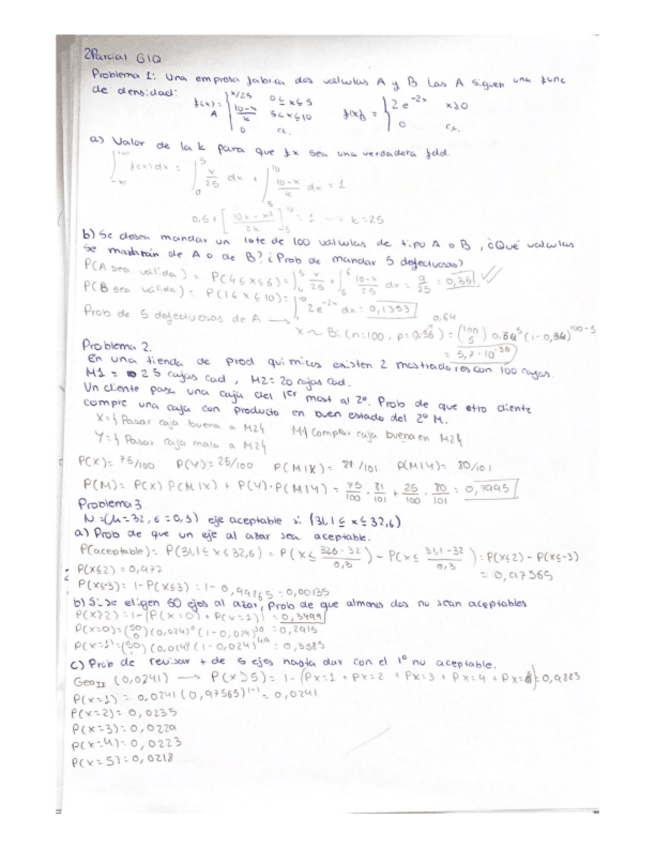 2Parcial GIQ
Problema 1: Una empresa fabrica dos valvulas A y B Las A siguen una func
de densidad: f(x)= { x/25 0≤x≤5 f(x)= { 2e^-2x x≥0
A 10-x/k 5≤x≤10 0 cx.
0 cx.
a) Valor de la k para que fx sea una verdadera fdd.
∫ f(x)dx = ∫ x/25 dx + ∫ 10-x/k dx = 1
0,5+ [10x-x²/2k] = 1 → k=25
b) Se desea mandar un lote de 100 valvulas de tipo A o B, ¿Qué valvulas
se mandarán de A o de B? ¿Prob de mandar 5 defectuosas?
P(A sea válida) = P(4≤x≤6) = ∫ x/25 + ∫ 10-x/25 dx = 9/25 = 0,36
P(B sea válida) = P(1≤x≤10) = ∫ 2e^-2x dx = 0,1353
Prob de 5 defectuosas de A → 0,64
X ~ Bi(n=100, p=0,36) = (100 5) 0,64^5 (1-0,64)^100-5
= 5,7·10^-36
Problema 2.
En una tienda de prod quimicos existen 2 mostradores con 100 cajas.
M1 = 25 cajas cad, M2= 20 cajas cad.
Un cliente pasa una caja del 1er most al 2º. Prob de que otro cliente
compre una caja con producto en buen estado del 2º M.
X={ Pasar caja buena a M2} M{ Comprar caja buena en M2}
Y={ Pasar caja mala a M2}
P(X)= 75/100 P(Y)= 25/100 P(M|X)= 81/101 P(M|Y)= 80/101
P(M)= P(X) P(M|X) + P(Y)·P(M|Y) = 75/100 · 81/101 + 25/100 · 80/101 = 0,7995
Problema 3
N =(μ=32, σ=0,3) eje aceptable si (31,1≤x≤32,6)
a) Prob de que un eje al azar sea aceptable.
P(aceptable)= P(31,1≤x≤32,6) = P(x≤ 32,6-32/0,3) - P(x≤ 31,1-32/0,3) = P(x≤2) - P(x≤-3)
P(x≤2) = 0,977 = 0,97565
P(x≤-3)= 1-P(x≤3) = 1-0,99865 = 0,00135
b) Si se eligen 50 ejes al azar, Prob de que almenos dos no sean aceptables
P(x≥2)= 1-(P(x=0)+P(x=1)) = 0,3499
P(x=0)= (50 0) (0,024)^0 (1-0,024)^50 = 0,2915
P(x=1)= (50 1) (0,024)^1 (1-0,024)^49 = 0,3585
c) Prob de revisar + de 5 ejes hasta dar con el 1º no aceptable.
Geo II (0,0241) → P(x>5) = 1-(Px=1 + Px=2 + Px=3 + Px=4 + Px=5)=0,9883
P(x=1) = 0,0241 (0,97565)^1-1 = 0,0241
P(x=2)= 0,0235
P(x=3)= 0,0229
P(x=4)= 0,0223
P(x=5)= 0,0218